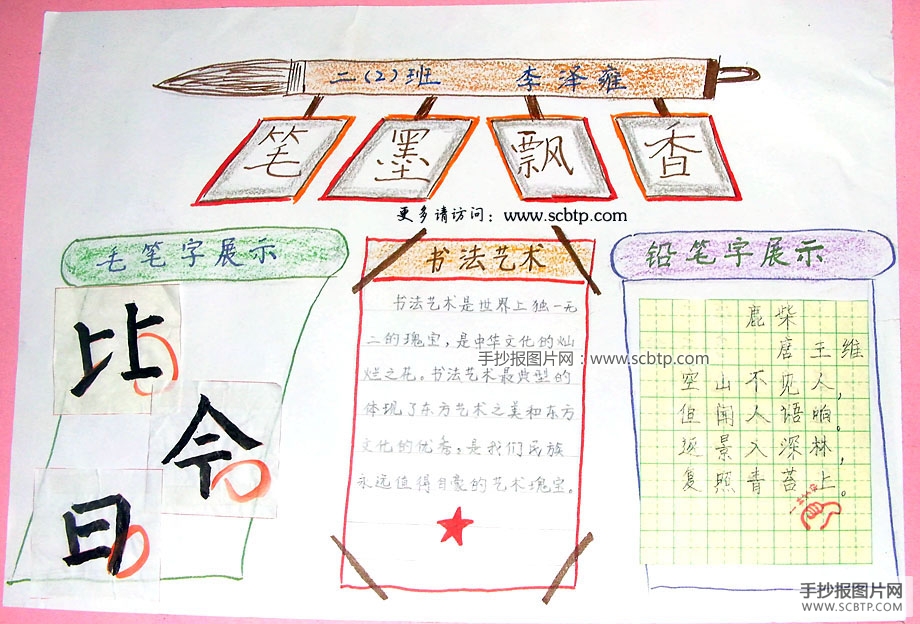 二(2)班 李泽雍
笔 墨 飘 香
更多请访问：www.scbtp.com
毛笔字展示
比
令
日
书法艺术
书法艺术是世界上独一无
二的瑰宝，是中华文化的灿
手抄报图片网：www.scbtp.com
烂之花。书法艺术最典型的
体现了东方艺术之美和东方
文化的优秀，是我们民族
永远值得自豪的艺术瑰宝。
铅笔字展示
鹿柴
唐王维
空山不见人，
但闻人语响。
返景入深林，
复照青苔上。
手抄报图片网
WWW.SCBTP.COM